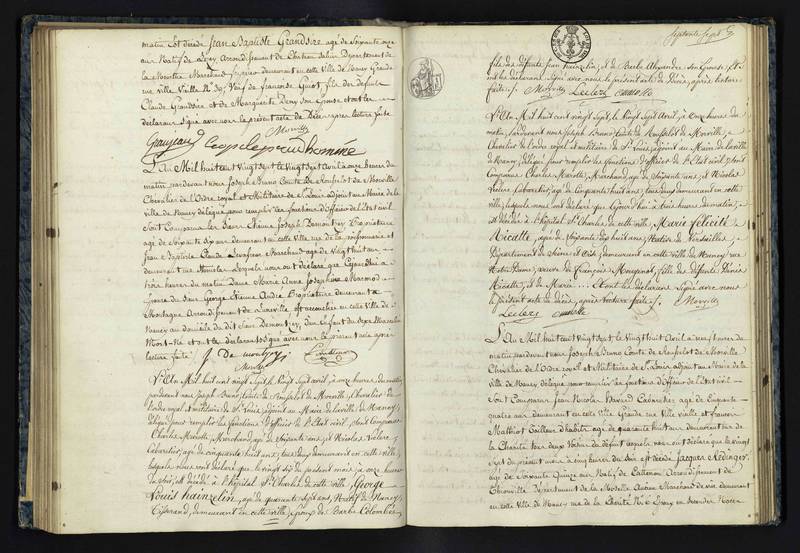 matin est décédé Jean Baptiste Grandsire agé de Soixante onze
ans Natif de Arrondissement de Chateau Salin Département de
la Meurthe Marchand fripier demeurant en cette Ville de Nancy Grande
rue Ville Vieille N° 39, Veuf de françoise fils des defunts
Claude Grandsire et de Marguerite son Epouse et ont les
déclarans Signé avec nous le présent acte de Décès après lecture faite
Morville
L'An Mil huit cent Vingt Sept le Vingt Sept Avril à onze heures du
matin pardevant nous Joseph Bruno Comte De Rousselot de Morville
Chevalier de l'Ordre royal et Militaire de St Louis adjoint au Maire de la
ville de Nancy délégué pour remplir les fonctions d'Officier de l'Etat civil
Sont Comparus les Sieurs Etienne Joseph Demontzey Propriétaire
age de Soixante dix ans demeurant en cette Ville rue de la poissonnerie et
Jean Baptiste Claude Marchand age de Vingt huit ans
demeurant rue lesquels nous ont déclaré que Cejourdhui à
trois heures du matin Dame Marie Anne Josephine Marmod
Epouse du Sieur George Etienne André Propriétaire demeurant à
Arrondissement de Lunéville est accouchée en cette Ville de
Nancy au domicile du dit Sieur Demontzey, d'un Enfant du Sexe Masculin
Mort-Né et ont les déclarans Signé avec nous le présent acte après
lecture faite
Morville
L'An Mil huit cent vingt Sept le Vingt Sept avril, à onze heures du matin,
pardevant nous Joseph Bruno, Comte de Rousselot de Morville, Chevalier de
l'ordre royal et militaire de St Louis, adjoint au Maire de la ville de Nancy,
délégué pour remplir les fonctions d'Officier de l'Etat civil, Sont Comparus
Charles Mariotte, Marchand, agé de Soixante ans, et Nicolas
Cabaretier, agé de cinquante huit ans, tous deux demeurant en cette ville,
lesquels nous ont déclaré que le vingt Six du présent mois, à onze heures
du Soir, est décédé à l'hôpital St Charles de cette ville, George
Louis hainzelin, agé de quarante Sept ans, Natif de Nancy,
Tisserand, demeurant en cette ville, Epoux de Barbe Colombée
Septante Sept
fils des défunts Jean hainzelin, et de Barbe son Epouse, Et
ont les déclarans Signé avec nous le présent acte de Décès, après lecture
faite.
Morville Leclerc
L'An Mil huit cent vingt Sept, le Vingt Sept Avril, à onze heures du
matin, pardevant nous Joseph Bruno Comte de Rousselot de Morville,
Chevalier de l'ordre royal et militaire de St Louis, adjoint au Maire de la ville
de Nancy, délégué pour remplir les fonctions d'officier de l'Etat civil, Sont
Comparus Charles Mariotte, Marchand, agé de Soixante ans, et Nicolas
Cabaretier, agé de Cinquante huit ans, tous deux demeurant en cette
ville, lesquels nous ont déclaré que Cejourd'hui, à trois heures du matin,
est décédée à l'hôpital St Charles de cette ville, Marie félicité
Ricatte, agée de Soixante dix huit ans, Native de Versailles,
Département de Seine et Oise, demeurant en cette ville de Nancy, rue
Notre Dame, veuve de françois fille des défunts Denis
Ricatte, et de Marie .... Et ont les déclarans Signé avec nous
le présent acte de Décès, après lecture faite.
Morville
Leclerc
L'An Mil huit cent vingt Sept, le Vingt huit Avril à neuf heures du
matin pardevant nous Joseph Bruno Comte De Rousselot de Morville
Chevalier de l'Ordre royal et Militaire de St Louis adjoint au Maire de la
Ville de Nancy délégué pour remplir les fonctions d'Officier de l'Etat civil
Sont Comparus Jean Nicolas Cabaretier agé de Cinquante
quatre ans demeurant en cette Ville Grande rue Ville Vieille et francois
Mathiot Tailleur d'habits agé de quarante huit ans demeurant rue de
la Charité tous deux Voisins du défunt lesquels nous ont déclaré que le vingt
Sept du présent mois à cinq heures du Soir est décédé Jacques Redinger
agé de Soixante Quinze ans Natif de Cattenom Arrondissement de
Thionville Département de la Moselle Ancien Marchand de vin demeurant
en cette Ville de Nancy rue de la Charité N° 2 Epoux en secondes Noces